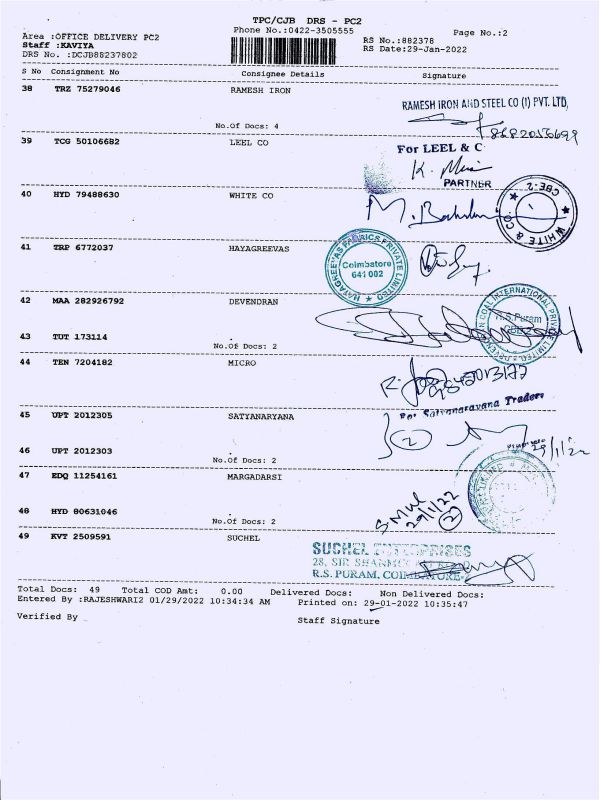 TPC/CJB DRS - PC2
Phone No.:0422-3505555
Area :OFFICE DELIVERY PC2
Staff :KAVIYA
DRS No. :DCJB88237802
RS No.:882378
RS Date:29-Jan-2022
Page No.:2
S No Consignment No Consignee Details Signature
38 TRZ 75279046 RAMESH IRON
RAMESH IRON AND STEEL CO (I) PVT. LTD,
No.Of Docs: 4
39 TCG 50106682 LEEL CO
For LEEL & C
PARTNER
40 HYD 79488630 WHITE CO
WHITE & CO
CBE-2
41 TRP 6772037 HAYAGREEVAS
HAYAGREEVAS FABRICS PRIVATE LIMITED
Coimbatore
641 002
42 MAA 282926792 DEVENDRAN
DEVENDRAN COAL INTERNATIONAL PRIVATE LIMITED
R.S.Puram
43 TUT 173114
No.Of Docs: 2
44 TEN 7204182 MICRO
For Satyanarayana Traders
45 UPT 2012305 SATYANARYANA
2
29/1/22
46 UPT 2012303
No.Of Docs: 2
47 EDQ 11254161 MARGADARSI
29/1/22
2
48 HYD 80631046
No.Of Docs: 2
49 KVT 2509591 SUCHEL
SUCHEL ENTERPRISES
28, SIR SHANMUGAM ROAD
R.S. PURAM, COIMBATORE-
Total Docs: 49 Total COD Amt: 0.00 Delivered Docs: Non Delivered Docs:
Entered By :RAJESHWARI2 01/29/2022 10:34:34 AM Printed on: 29-01-2022 10:35:47
Verified By
Staff Signature